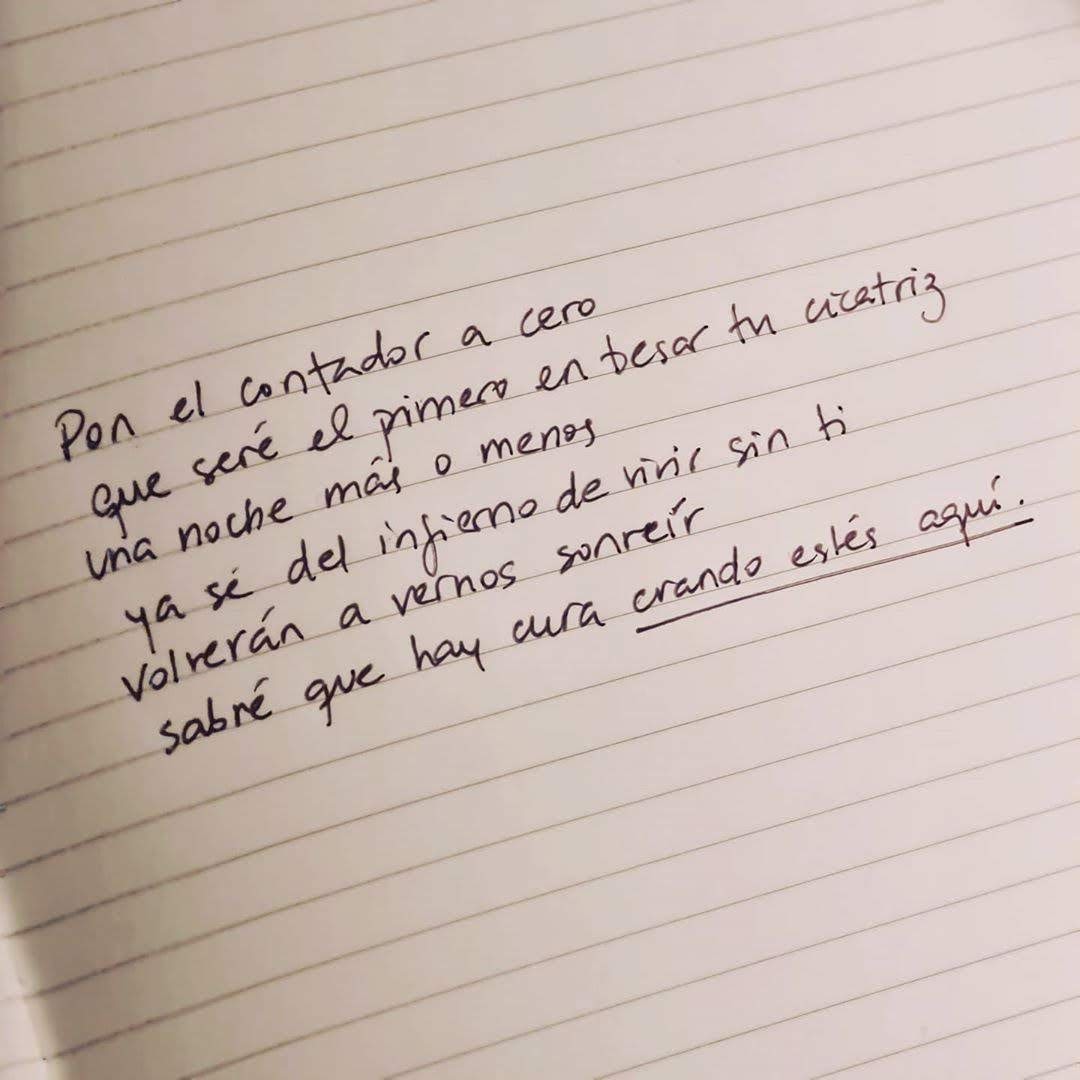 Pon el contador a cero
que seré el primero en besar tu cicatriz
una noche más o menos
ya sé del infierno de vivir sin ti
volverán a vernos sonreír
sabré que hay cura cuando estés aquí.